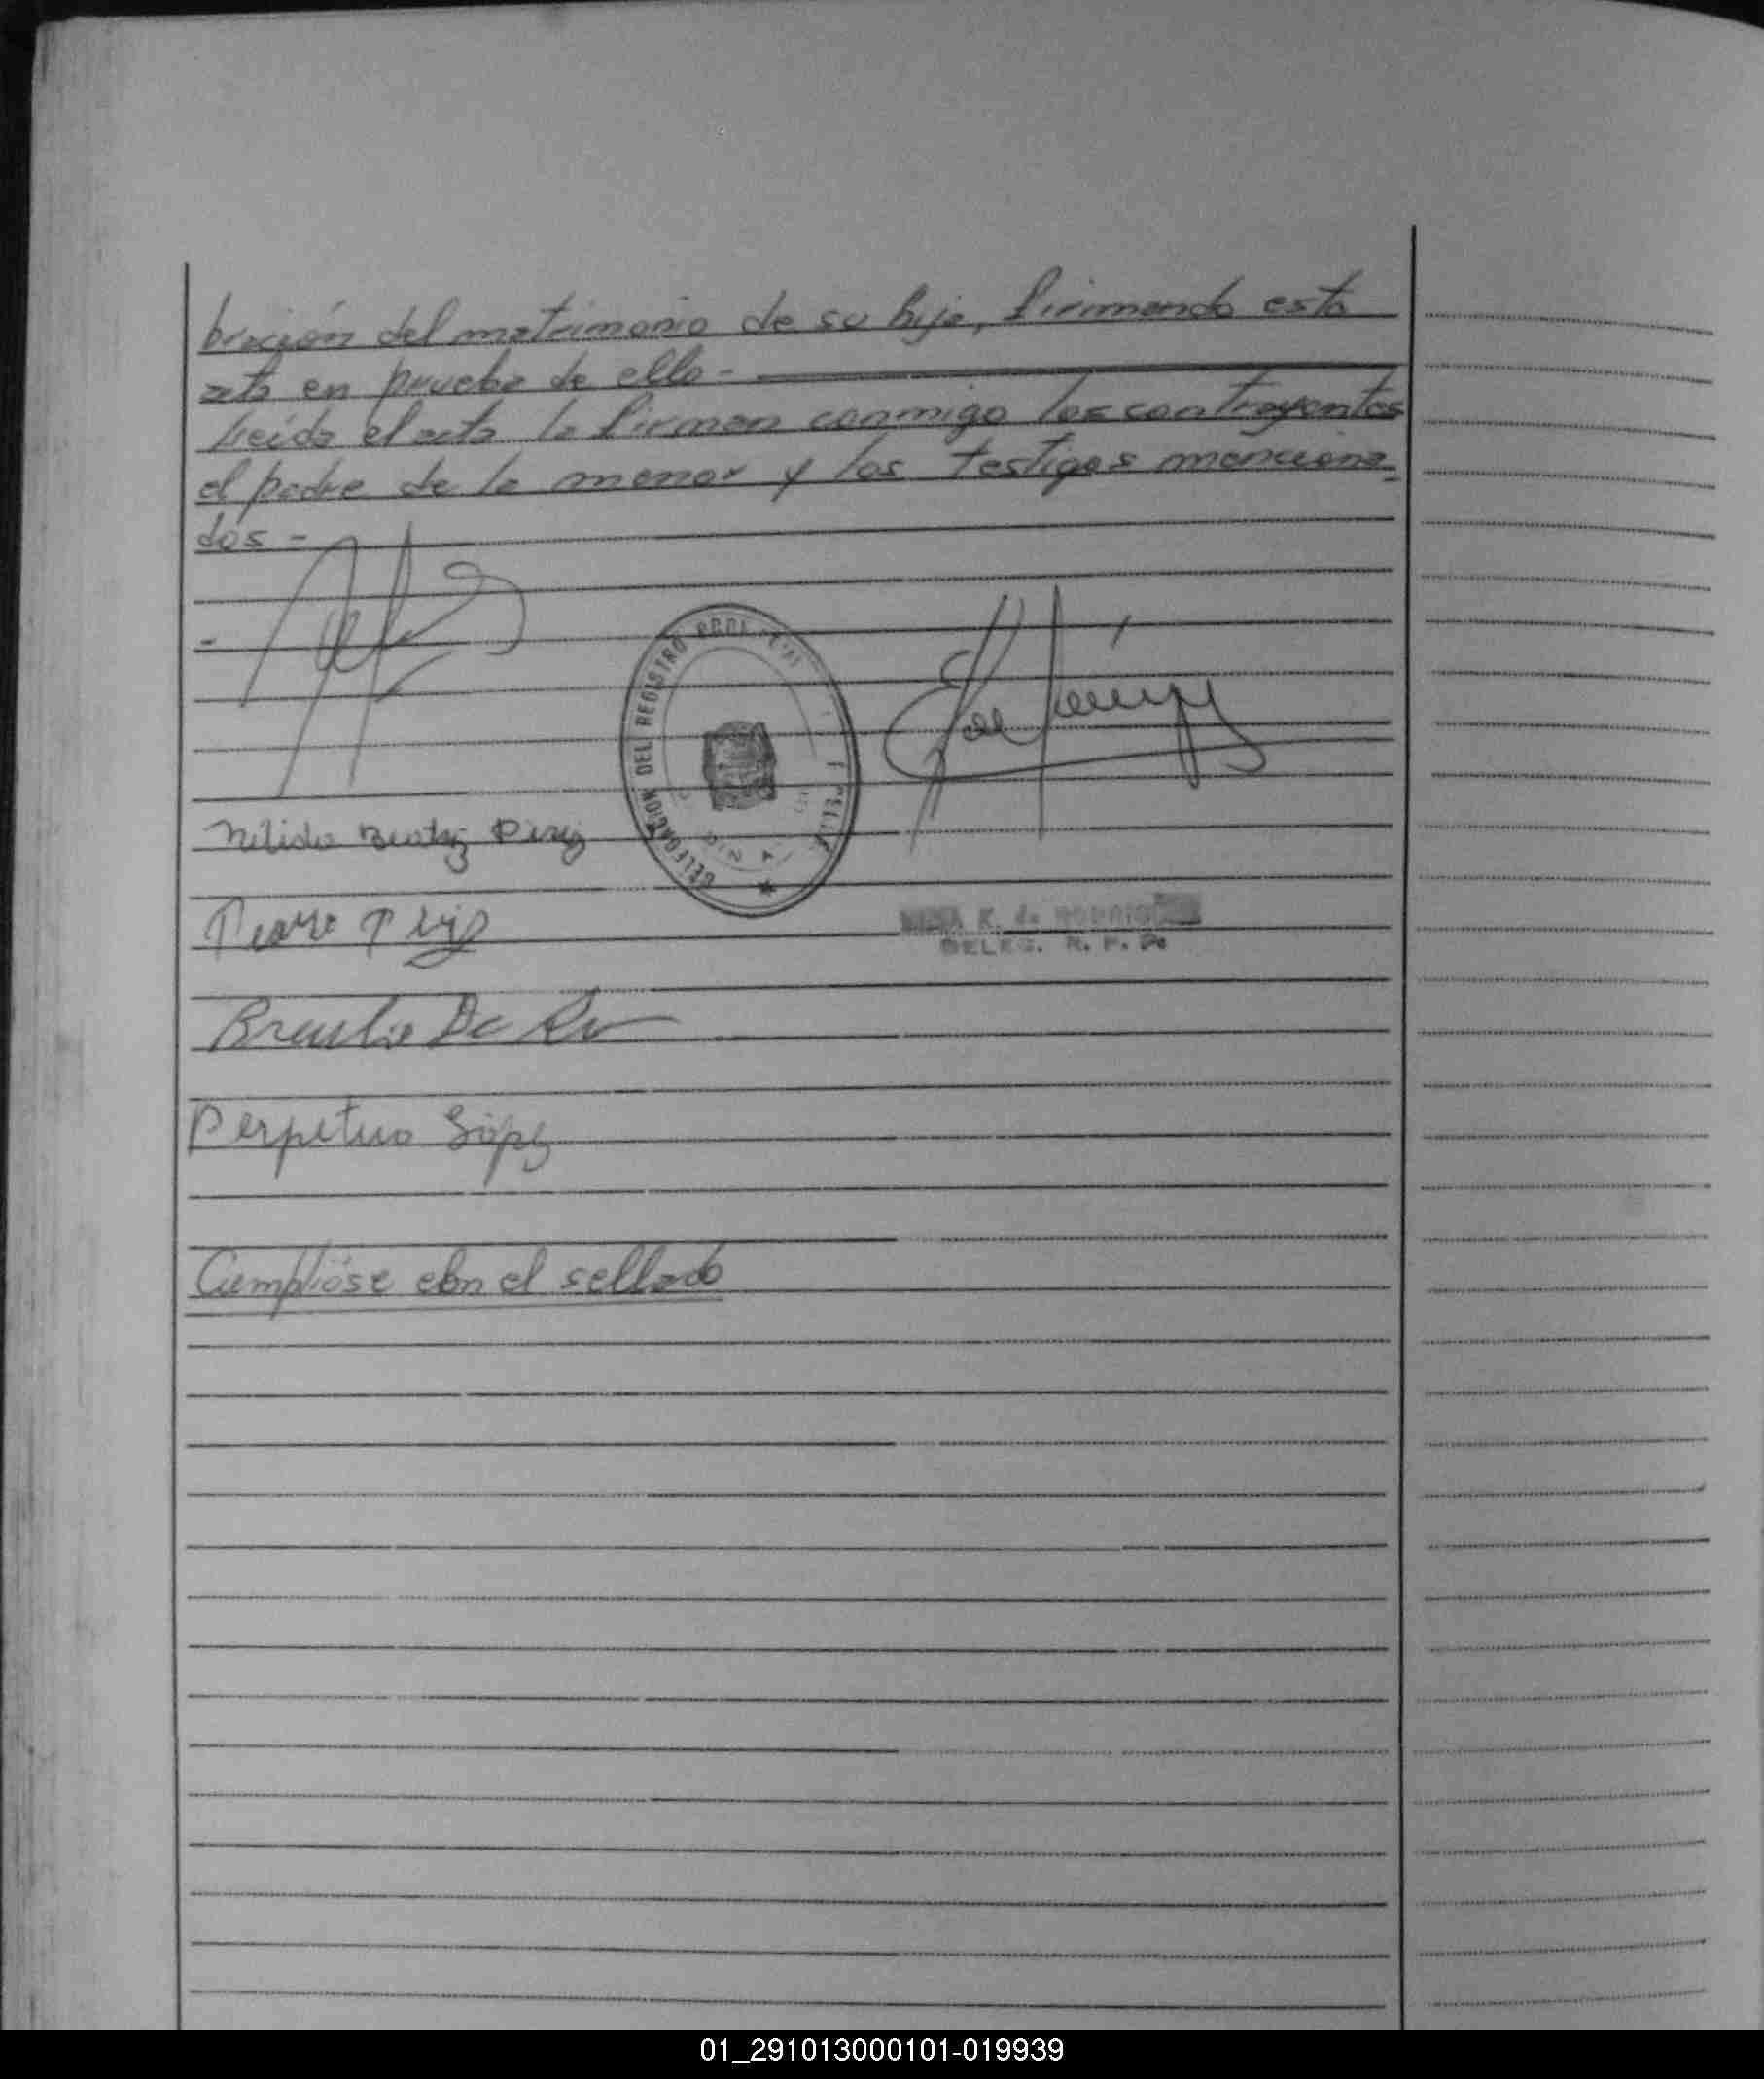 bración del matrimonio de su hija, firmando esta
acta en prueba de ello.-
Leída el acta la firman conmigo los contrayentes
el padre de la menor y los testigos menciona-
dos -
DELEGACION DEL REGISTRO
Nélida Beatriz Pérez
K. de RODRIGUEZ
DELEG. R. P. Pe
Braulio Da
Perpetuo López
Cumplióse con el sellado
01_291013000101-019939